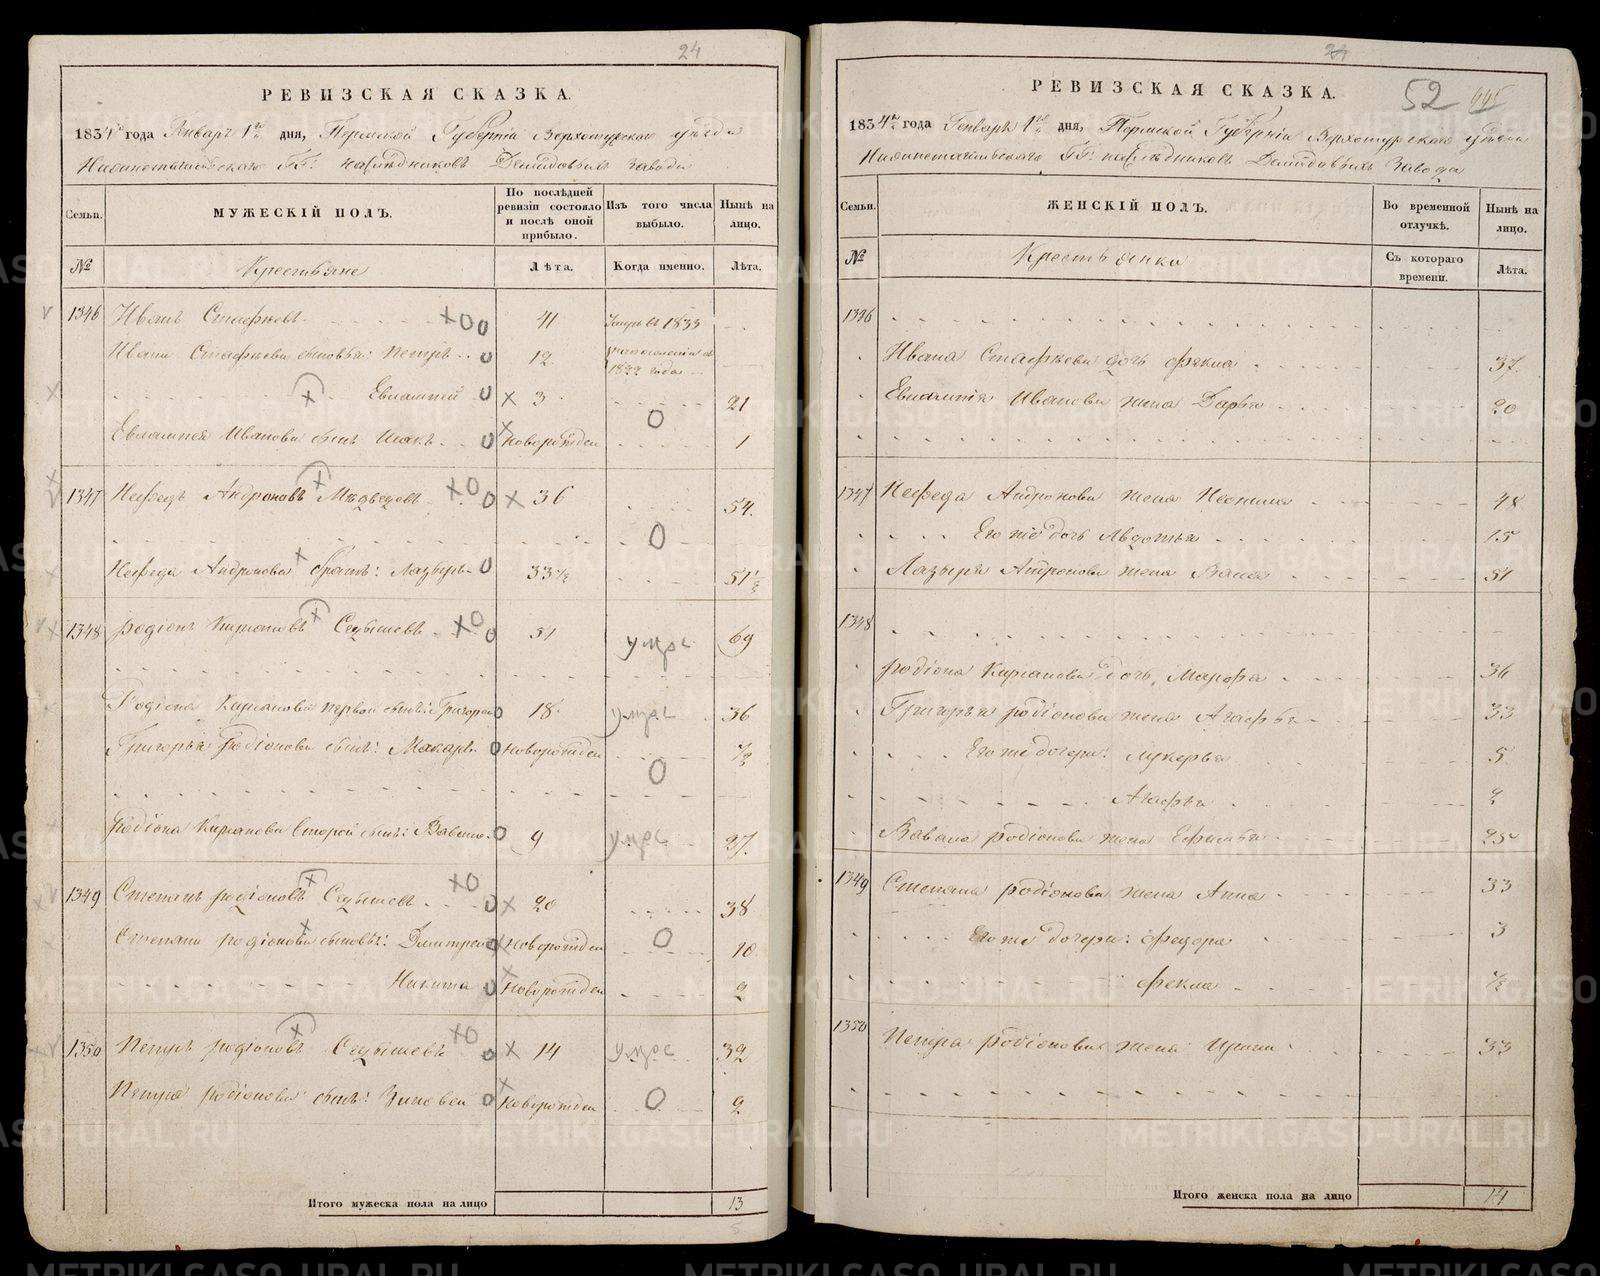 24
РЕВИЗСКАЯ СКАЗКА.
1834го года Генваря 1го дня, Пермской Губерніи Верхотурскаго уѣзда
Нижнетагильскаго ГГ: наслѣдниковъ Демидовыхъ завода
Семьи.
МУЖЕСКІЙ ПОЛЪ.
По послѣдней ревизіи состояло и послѣ оной прибыло.
Изъ того числа выбыло.
Нынѣ на лицо.
№
Крестьяне
Лѣта.
Когда именно.
Лѣта.
1346 Иванъ 41 1833
Ивана сыновья: Петръ 12 1832 года
Евлампій 3 21
Евлампія Иванова сынъ Исакъ новорожден 1
1347 Нефедъ Андроновъ Медведевъ 36 54
Нефеда Андронова братъ: Лазырь 33½ 51½
1348 Родіонъ Кирьяновъ 51 умре 69
Родіона Кирьянова первой сынъ: Григорей 18 умре 36
Григорья Родіонова сынъ: Макаръ новорожден ½
Родіона Кирьянова второй сынъ: Вавило 9 умре 27
1349 Степанъ Родіоновъ 20 38
Степана Родіонова сыновья: Дмитрей новорожден 10
Никита новорожден 2
1350 Петръ Родіоновъ 14 умре 32
Петра Родіонова сынъ: Зиновей новорожден 2
Итого мужеска пола на лицо 13
24
52
РЕВИЗСКАЯ СКАЗКА.
1834го года Генваря 1го дня, Пермской Губерніи Верхотурскаго уѣзда
Нижнетагильскаго ГГ: наслѣдниковъ Демидовыхъ завода
Семьи.
ЖЕНСКІЙ ПОЛЪ.
Во временной отлучкѣ.
Нынѣ на лицо.
№
Крестьянки
Съ котораго времени.
Лѣта.
1346
Ивана дочь Фекла 37
Евлампія Иванова жена Дарья 20
1347 Нефеда Андронова жена Неонила 48
Его же дочь Авдотья 15
Лазыря Андронова жена 51
1348
Родіона Кирьянова дочь Марфа 36
Григорья Родіонова жена Агафья 33
Его же дочери: Лукерья 5
Агафья 2
Вавила Родіонова жена Ефимья 25
1349 Степана Родіонова жена Анна 33
Его же дочери: Федора 3
Фекла ½
1350 Петра Родіонова жена Ирина 33
Итого женска пола на лицо 14
METRIKI.GASO-URAL.RU